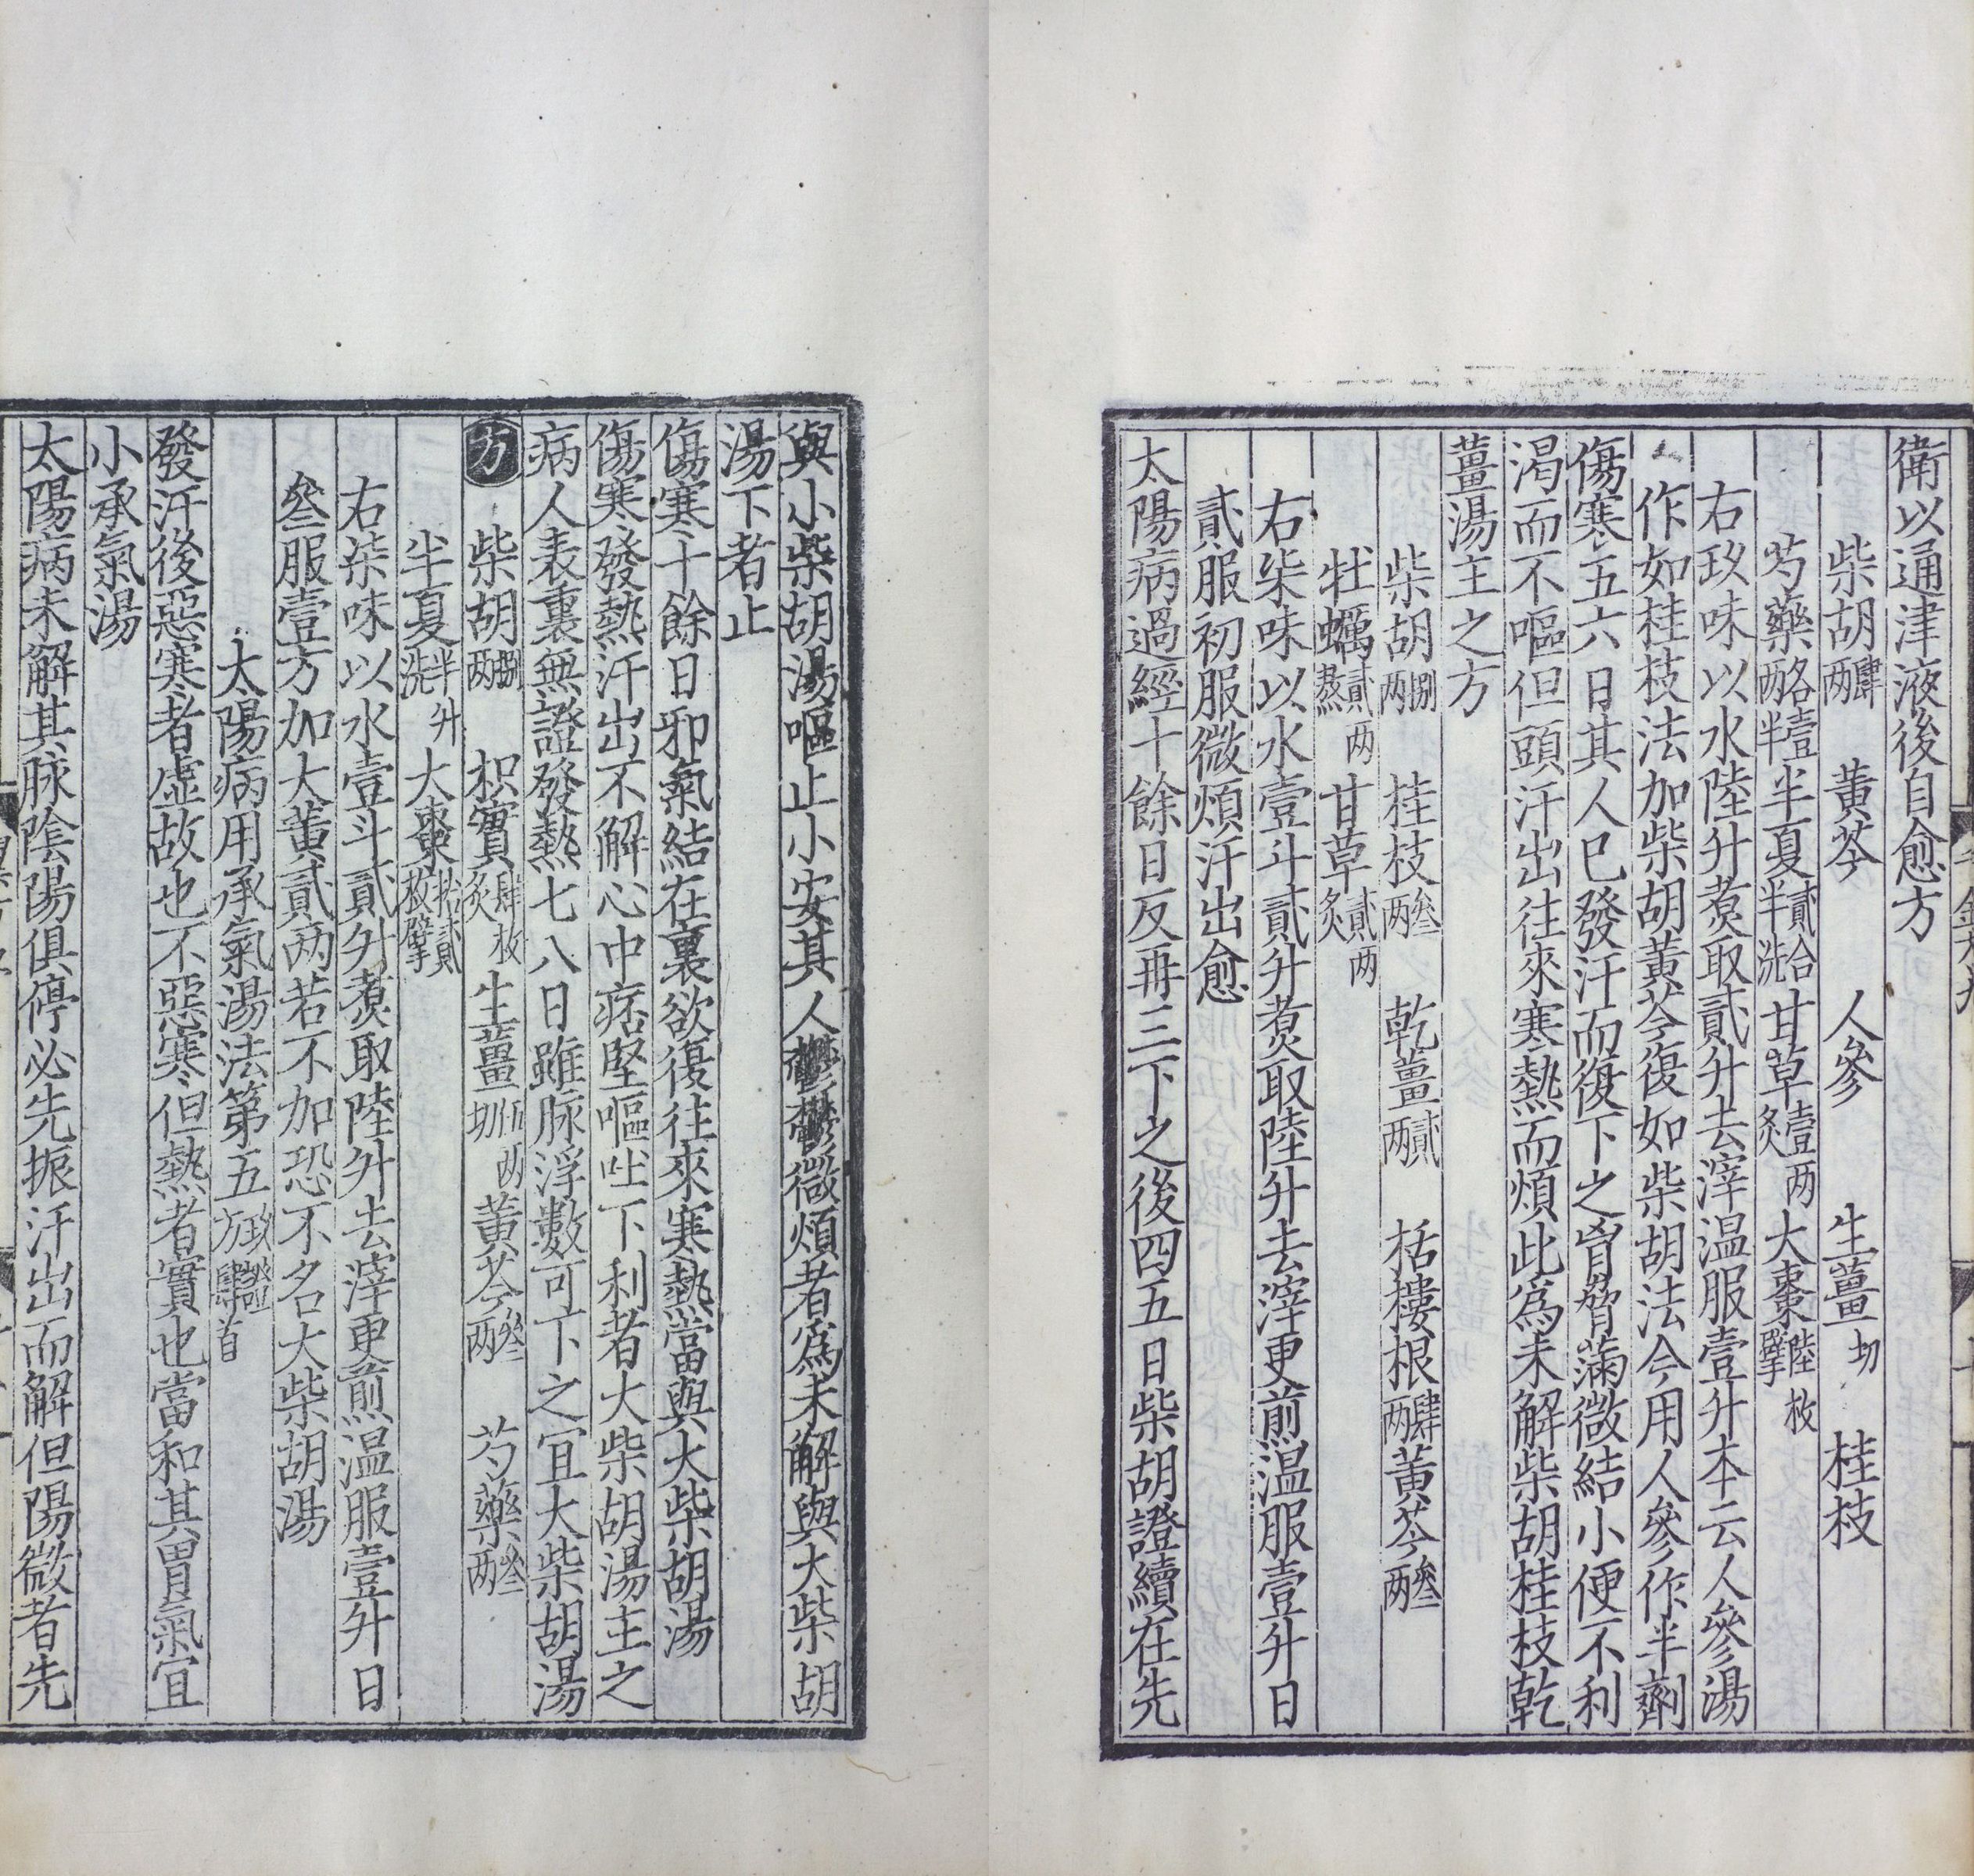 衛以通津液後自愈方
柴胡肆两 黄芩 人參 生薑切 桂枝
芍藥各壹两半 半夏貳合半洗 甘草壹两炙 大棗陸枚擘
右玖味以水陸升煑取貳升去滓温服壹升本云人參湯
作如桂枝法加柴胡黄芩復如柴胡法今用人參作半劑
傷寒五六日其人已發汗而復下之胷脅滿微結小便不利
渴而不嘔但頭汗出往來寒熱而煩此爲未解柴胡桂枝乾
薑湯主之方
柴胡捌两 桂枝叁两 乾薑貳两 栝樓根肆两 黄芩叁两
牡蠣貳两熬 甘草貳两炙
右柒味以水壹斗貳升煑取陸升去滓更煎温服壹升日
貳服初服微煩汗出愈
太陽病過經十餘日反再三下之後四五日柴胡證續在先
與小柴胡湯嘔止小安其人鬱鬱微煩者爲未解與大柴胡
湯下者止
傷寒十餘日邪氣結在裏欲復往來寒熱當與大柴胡湯
傷寒發熱汗出不解心中痞堅嘔吐下利者大柴胡湯主之
病人表裏無證發熱七八日雖脉浮數可下之宜大柴胡湯
方 柴胡捌两 枳實肆枚炙 生薑伍两切 黄芩叁两 芍藥叁两
半夏半升洗 大棗拾貳枚擘
右柒味以水壹斗貳升煑取陸升去滓更煎温服壹升日
叁服壹方加大黄貳两若不加恐不名大柴胡湯
太陽病用承氣湯法第五玖證方肆首
發汗後惡寒者虚故也不惡寒但熱者實也當和其胃氣宜
小承氣湯
太陽病未解其脉陰陽俱停必先振汗出而解但陽微者先